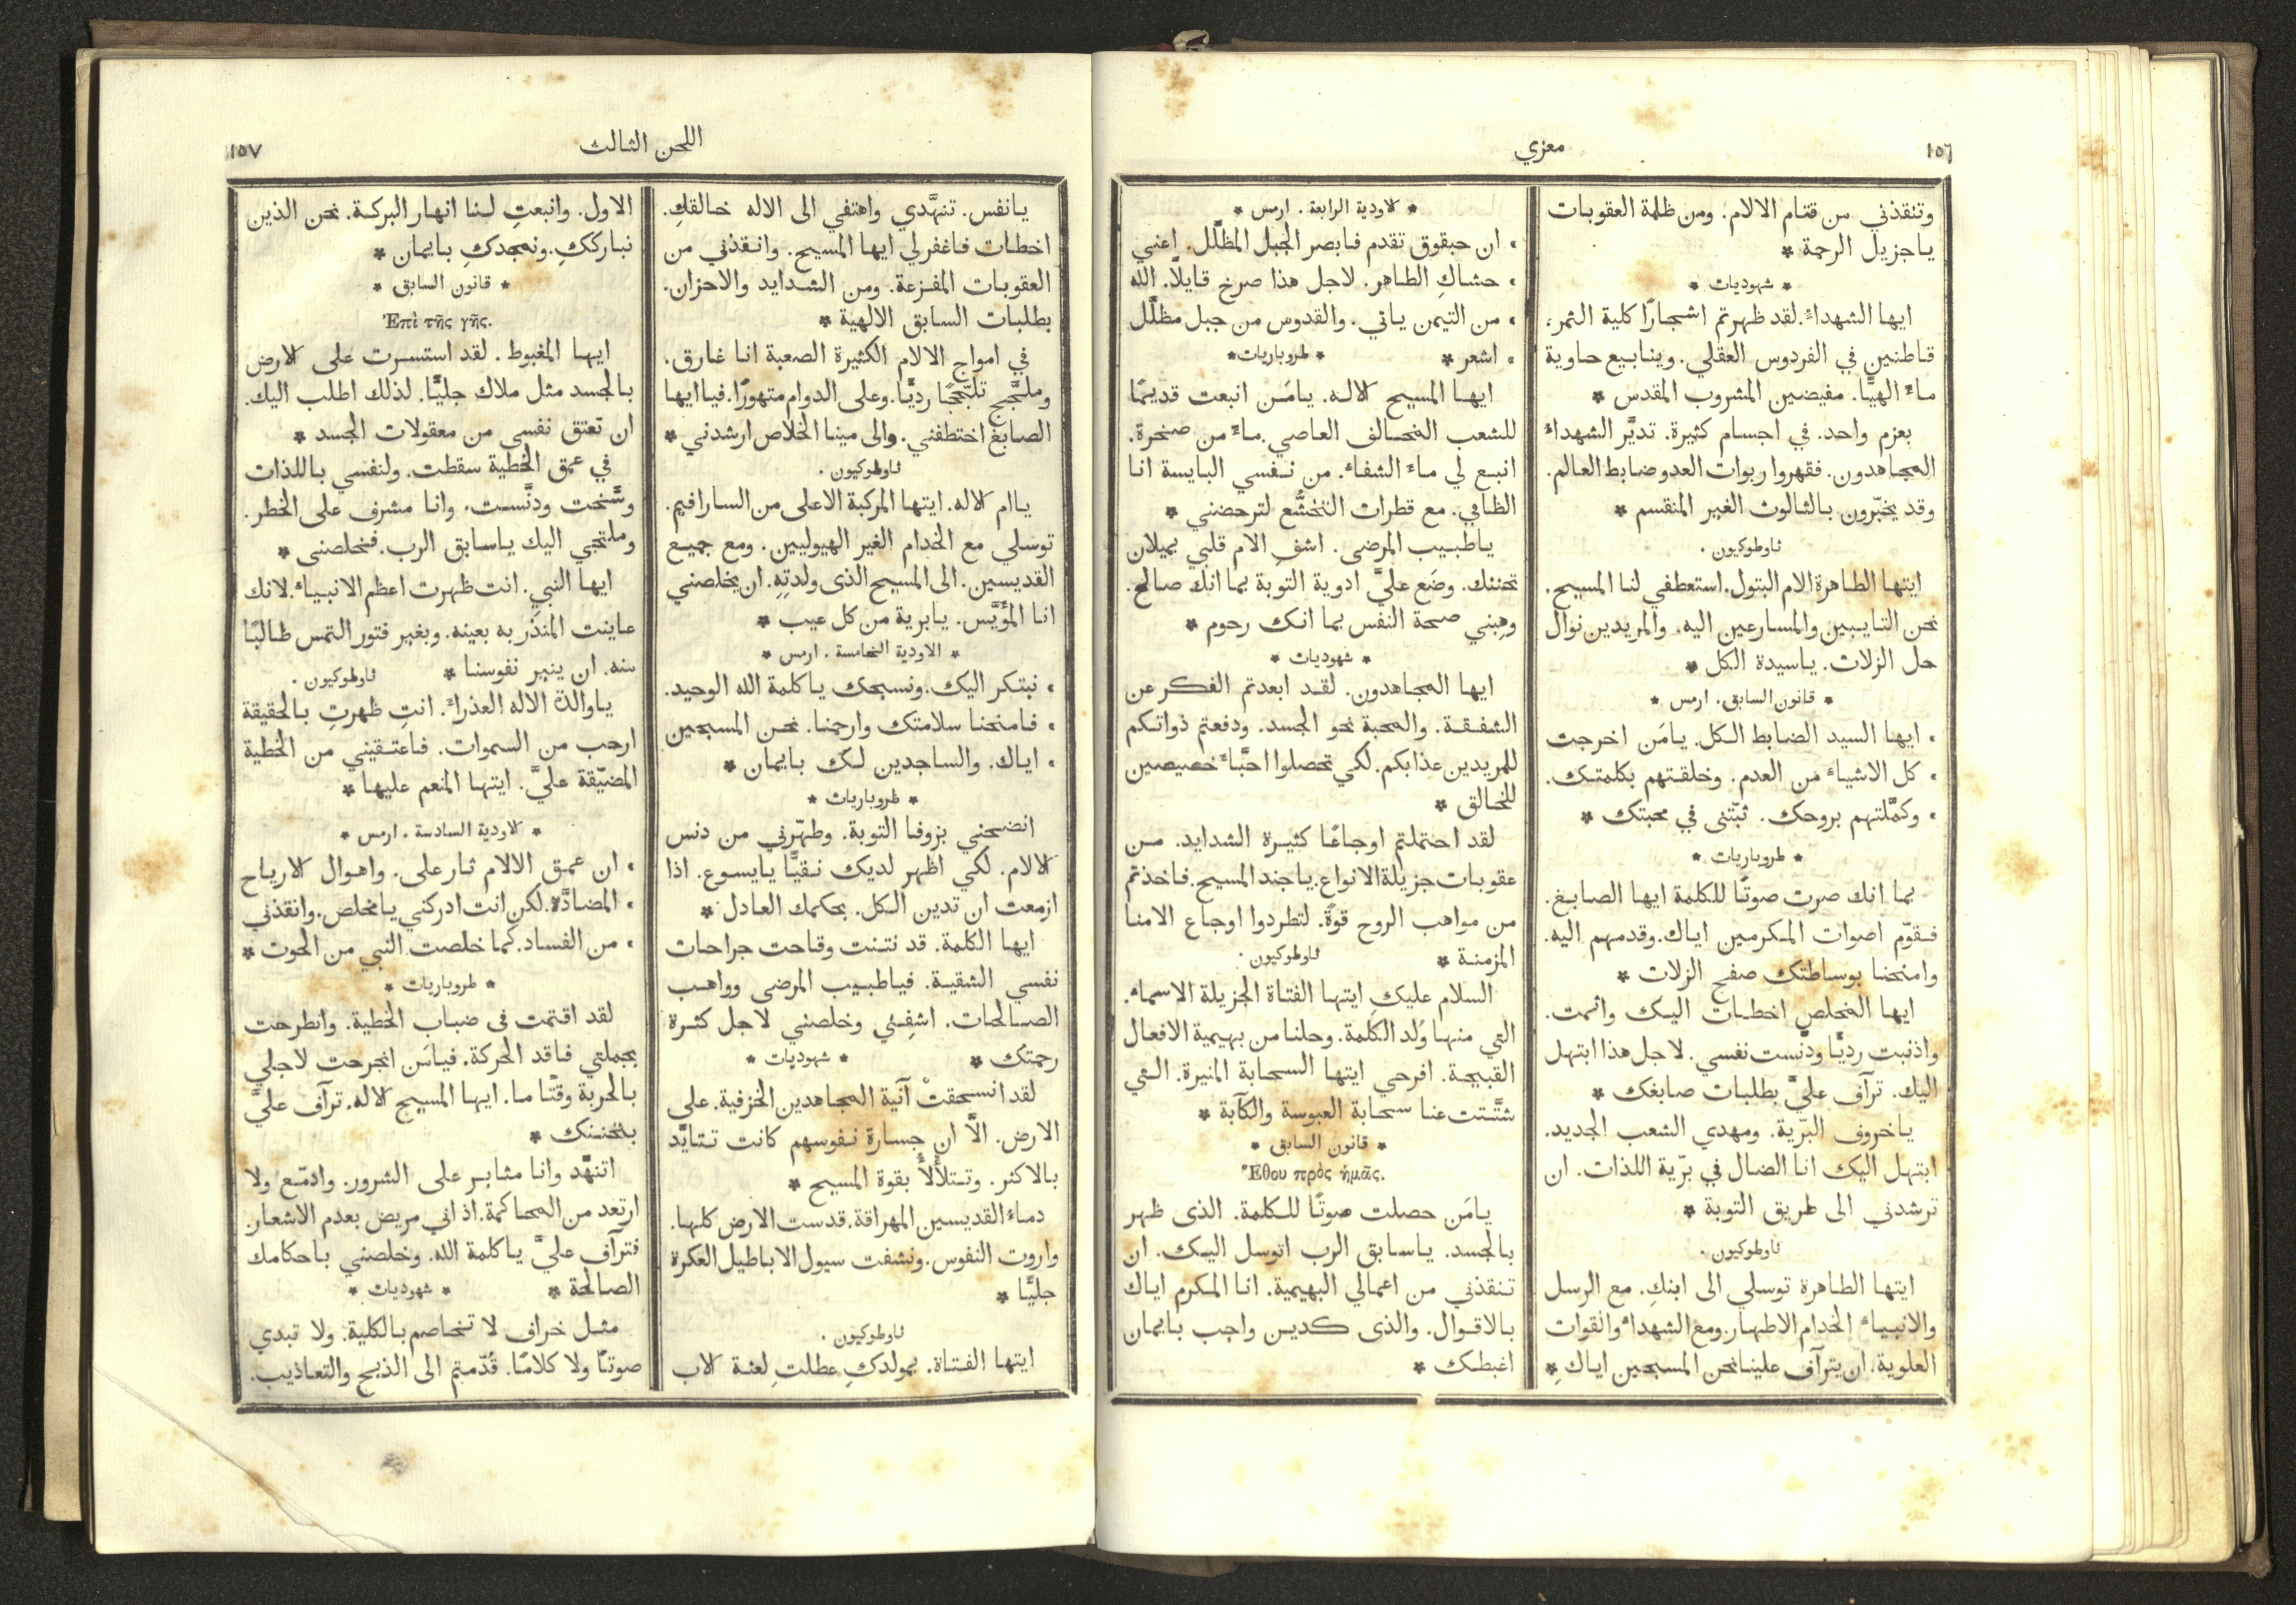 ١٥٦
معزي
وتنقذني من قتام الالام. ومن ظلمة العقوبات
ياجزيل الرحمة *
* شهوديات *
ايها الشهداءُ. لقد ظهرتم اشجارًا كلية الثمر،
قاطنين في الفردوس العقلي. وينابيع حاوية
ماءً الهيًّا. مفيضين المشروب المقدس *
بعزم واحد. في اجسام كثيرة. تديَّر الشهداءُ
المجاهدون. فقهروا ربوات العدو ضابط العالم.
وقد يخبّرون بالثالوث الغير المنقسم *
ثاوطوكيون.
ايتها الطاهرة الام البتول. استعطفي لنا المسيح.
نحن التايبين والمسارعين اليه. والمريدين نوال
حل الزلات. ياسيدة الكل *
* قانون السابق. ارمس *
، ايها السيد الضابط الكل. يامَن اخرجت
، كل الاشياءِ من العدم. وخلقتهم بكلمتك.
، وكمَّلتهم بروحك. ثبّتنى في محبتك *
* طروباريات *
بما انك صرت صوتًا للكلمة ايها الصابغ.
فقوّم اصوات المكرمين اياك. وقدمهم اليه.
وامنحنا بوساطتك صفح الزلات *
ايها المخلص اخطات اليك واثمت.
واذنبت رديًّا ودنّست نفسي. لاجل هذا ابتهل
اليك. ترآف عليَّ بطلبات صابغك *
ياخروف البرّية. ومهدي الشعب الجديد.
ابتهل اليك انا الضال في برّية اللذات. ان
ترشدني الى طريق التوبة *
ثاوطوكيون.
ايتها الطاهرة توسلي الى ابنكِ. مع الرسل
والانبياءِ الخدام الاطهار. ومع الشهداءِ والقوات
العلوية. ان يترآف علينا نحن المسبحين اياكِ *
* الاودية الرابعة. ارمس *
، ان حبقوق تقدم فابصر الجبل المظلَّل. اعني
، حشاكِ الطاهر. لاجل هذا صرخ قايلًا. الله
، من التيمن ياتي. والقدوس من جبل مظلَّل
، اشعر * * طروباريات *
ايها المسيح الاله. يامَن انبعت قديمًا
للشعب المخالف العاصي. ماءً من صخرة.
انبع لي ماءَ الشفاءِ. من نفسي اليابسة انا
الظامي. مع قطرات التخشُّع لترحضني *
ياطبيب المرضى. اشفِ الام قلبي بميلان
تحننك. وضَع عليَّ ادوية التوبة بما انك صالح.
وهِبني صحة النفس بما انك رحوم *
* شهوديات *
ايها المجاهدون. لقد ابعدتم الفكر عن
الشفقة. والمحبة نحو الجسد. ودفعتم ذواتكم
للمريدين عذابكم. لكي تحصلوا احبَّاءَ خصيصين
للخالق *
لقد احتملتم اوجاعًا كثيرة الشدايد. من
عقوبات جزيلة الانواع. ياجند المسيح. فاخذتم
من مواهب الروح قوةً. لتطردوا اوجاع الامنا
المزمنة * ثاوطوكيون.
السلام عليكِ ايتها الفتاة الجزيلة الاسماءِ.
التي منها وُلد الكلمة. وحلنا من بهيمية الافعال
القبيحة. افرحي ايتها السحابة المنيرة. التي
شتَّتت عنا سحابة العبوسة والكآبة *
* قانون السابق *
Ἔθου πρὸς ἡμᾶς.
يامَن حصلت صوتًا للكلمة. الذى ظهر
بالجسد. ياسابق الرب اتوسل اليك. ان
تنقذني من اعمالي البهيمية. انا المكرم اياك
بالاقوال. والذى كدين واجب بايمان
اغبطك *
اللحن الثالث
١٥٧
يانفس. تنهَّدي واهتفي الى الاله خالقكِ.
اخطات فاغفر لي ايها المسيح. وانقذني من
العقوبات المفزعة. ومن الشدايد والاحزان.
بطلبات السابق الالهية *
في امواج الالام الكثيرة الصعبة انا غارق.
وملجَّج تلجّجًا رديًّا. وعلى الدوام متهورًا. فيا ايها
الصابغ اختطفني. والى مينا الخلاص ارشدني *
ثاوطوكيون.
ياام الاله. ايتها المركبة الاعلى من السارافيم.
توسلي مع الخدام الغير الهيوليين. ومع جميع
القديسين. الى المسيح الذى ولدتِهِ. ان يخلصني
انا المؤَيَّس. يابرية من كل عيب *
* الاودية الخامسة. ارمس *
، نبتكر اليك. ونسبحك ياكلمة الله الوحيد.
، فامنحنا سلامتك وارحمنا. نحن المسبحين
، اياك. والساجدين لك بايمان *
* طروباريات *
انضحني بزوفا التوبة. وطهّرني من دنس
الالام. لكي اظهر لديك نقيًّا يايسوع. اذا
ازمعت ان تدين الكل. بحكمك العادل *
ايها الكلمة. قد نتنت وقاحت جراحات
نفسي الشقية. فياطبيب المرضى وواهب
الصالحات. اشفِني وخلصني لاجل كثرة
رحمتك * * شهوديات *
لقد انسحقتْ آنية المجاهدين الخزفية. على
الارض. الَّا ان جسارة نفوسهم كانت تتايَّد
بالاكثر. وتتلأْلأُ بقوة المسيح *
دماءُ القديسين المهراقة. قدست الارض كلها.
واروت النفوس. ونشفت سيول الاباطيل العكرة
جليًّا *
ثاوطوكيون.
ايتها الفتاة. بمولدكِ عطلتِ لعنة الاب
الاول. وانبعتِ لنا انهار البركة. نحن الذين
نبارككِ. ونمجدكِ بايمان *
* قانون السابق *
Ἐπὶ τῆς γῆς.
ايها المغبوط. لقد استسرت على الارض
بالجسد مثل ملاك جليًّا. لذلك اطلب اليك.
ان تعتق نفسي من معقولات الجسد *
في عمق الخطية سقطت. ولنفسي باللذات
وسَّخت ودنَّست. وانا مشرف على الخطر.
وملتجي اليك ياسابق الرب. فخلصنى *
ايها النبي. انت ظهرت اعظم الانبياءِ. لانك
عاينت المنذَر به بعينه. وبغير فتور التمس طالبًا
منه. ان ينير نفوسنا * ثاوطوكيون.
ياوالدة الاله العذراءَ. انتِ ظهرتِ بالحقيقة
ارحب من السموات. فاعتقيني من الخطية
المضيّقة عليَّ. ايتها المنعم عليها *
* الاودية السادسة. ارمس *
، ان عمق الالام ثار على. واهوال الارياح
، المضادَّة. لكن انت ادركني يامخلص. وانقذني
، من الفساد. كما خلصت النبي من الحوت *
* طروباريات *
لقد اقتمت فى ضباب الخطية. وانطرحت
بجملتي فاقد الحركة. فيامَن انجرحت لاجلي
بالحربة وقتًا ما. ايها المسيح الاله. ترآف عليَّ
بتحننك *
اتنهَّد وانا مثابر على الشرور. وادمّع ولا
ارتعد من المحاكمة. اذ اني مريض بعدم الاشعار.
فترآف عليَّ ياكلمة الله. وخلصني باحكامك
الصالحة * * شهوديات *
مثل خراف لا تخاصم بالكلية. ولا تبدي
صوتًا ولا كلامًا. قُدّمتم الى الذبح والتعاذيب.